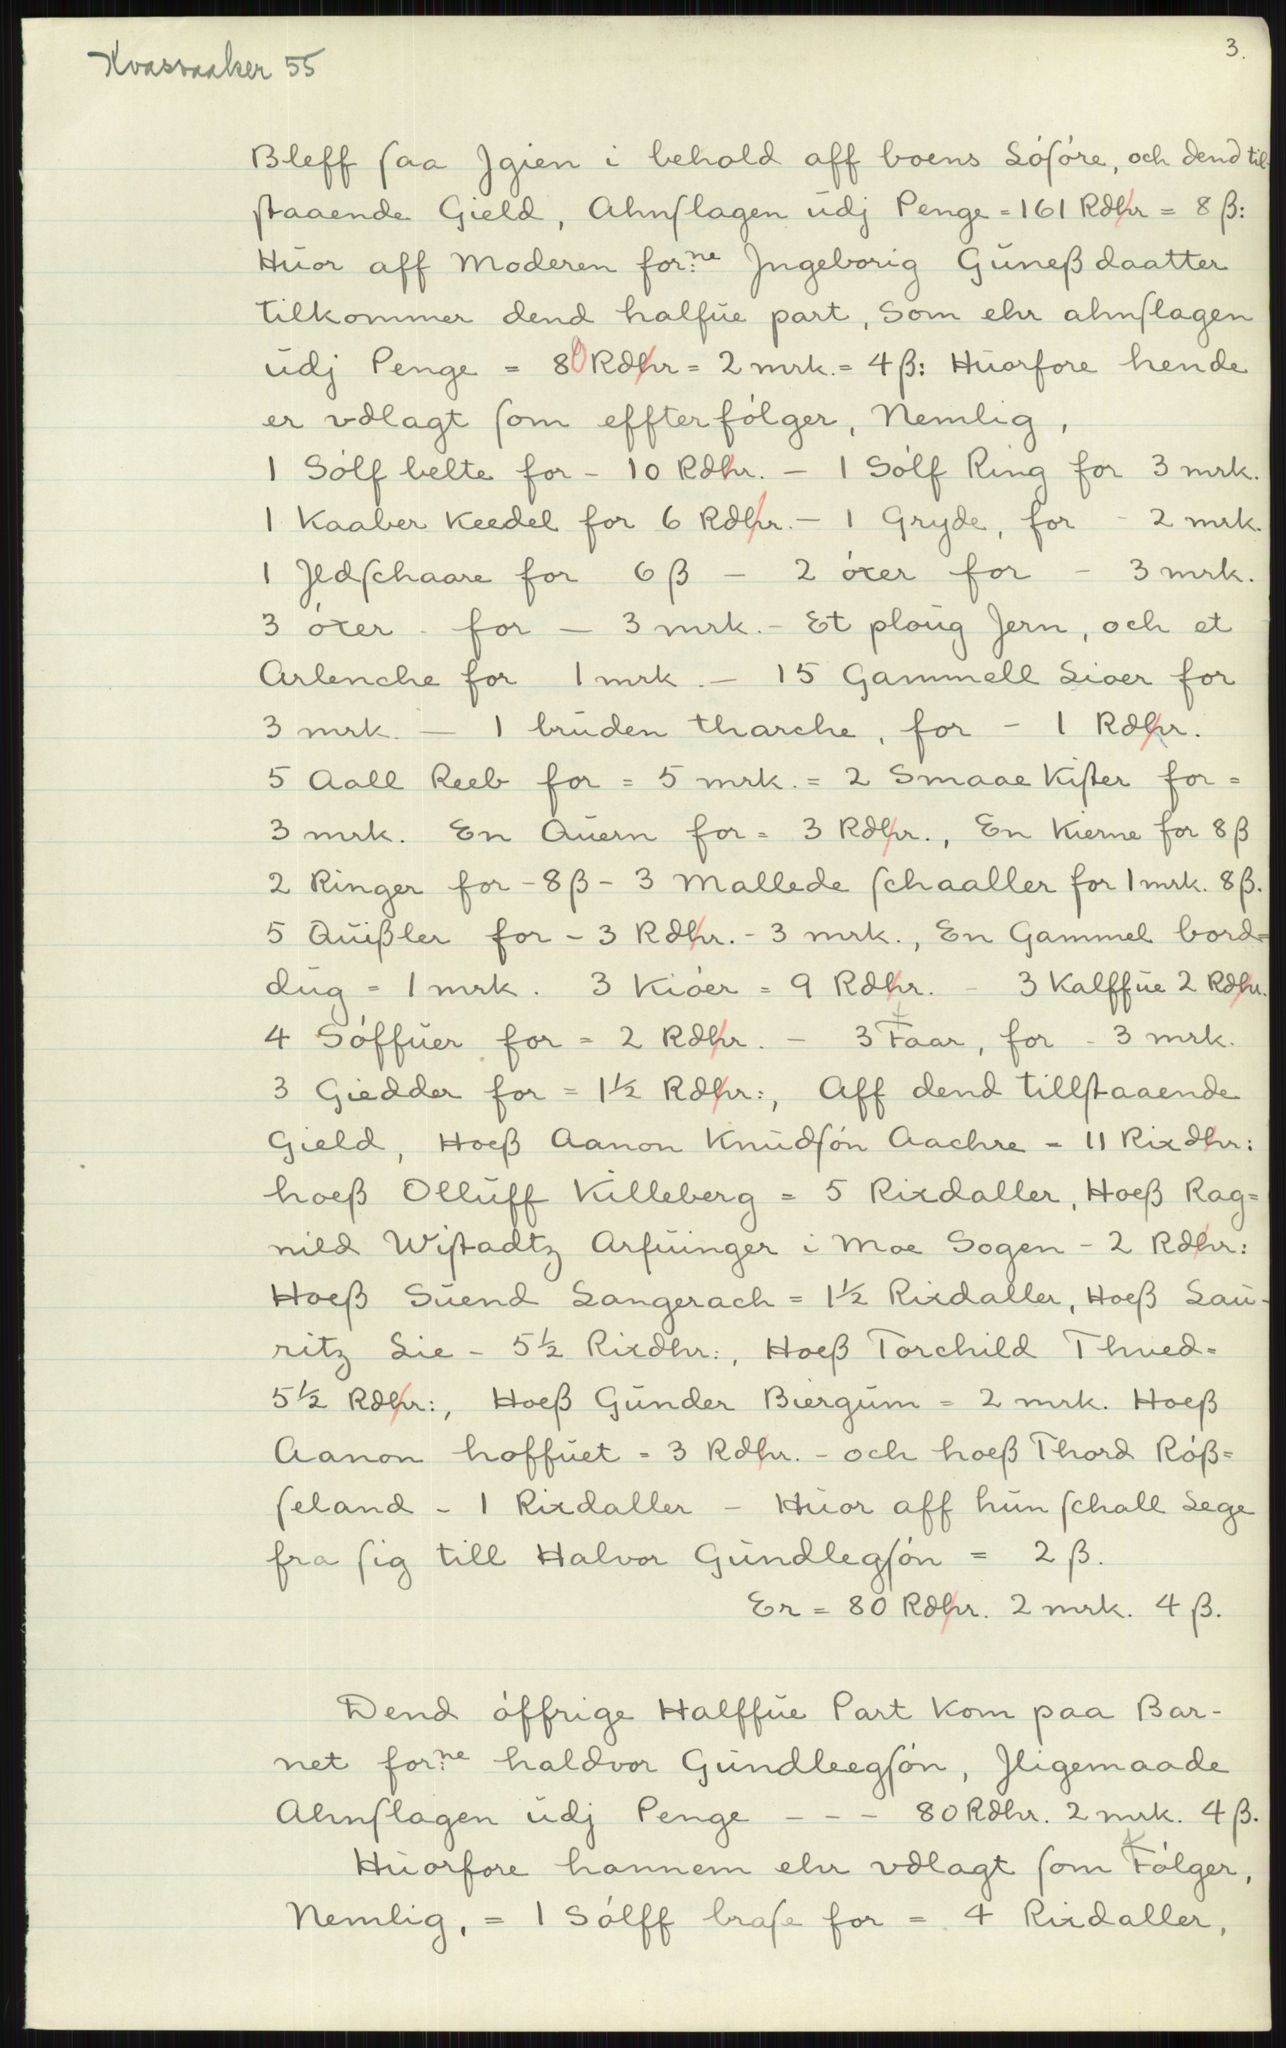 Kvasvaaker 55
3.
Bleff ſaa Jgien i behold aff boens Lóſóre, och dend til-
ſtaaende Gield, Ahnſlagen ŭdj Penge = 161 Rdhr = 8 β:
Hŭor aff Moderen for:ne Jngeborig Gŭneβdaatter
tilkommer dend halfŭe part, Som ehr ahnſlagen
ŭdj Penge = 80 Rdhr = 2 mrk. = 4 β: Hŭorfore hende
er vdlagt ſom effterfólger, Nemlig,
1 Sólf belte for - 10 Rdhr. - 1 Sólf Ring for 3 mrk.
1 Kaaber Keedel for 6 Rdhr. - 1 Gryde, for - 2 mrk.
1 Jldſchaare for 6 β - 2 óxer for - 3 mrk.
3 óxer - for - 3 mrk. - Et ploŭg Jern, och et
Arlenche for 1 mrk. - 15 Gammell Lioer for
3 mrk. - 1 brŭden tharche, for - 1 Rdhr.
5 Aall Reeb for = 5 mrk. = 2 Smaae Kiſter for =
3 mrk. En Qŭern for = 3 Rdhr., En Kierne for 8 β
2 Ringer for - 8 β - 3 Mallede ſchaaller for 1 mrk. 8 β.
5 Qŭiβler for - 3 Rdhr. - 3 mrk., En Gammel bord=
dŭg = 1 mrk. 3 Kióer = 9 Rdhr. - 3 Kalffŭe 2 Rdhr.
4 Sóffŭer for = 2 Rdhr. - 3 Faar, for - 3 mrk.
3 Giedder for = 1½ Rdhr:, Aff dend tillſtaaende
Gield, Hoeβ Aanon Knŭdſón Aachre = 11 Rixdhr:
hoeβ Ollŭff Killeberg = 5 Rixdaller, Hoeβ Rag=
nild Wiſtadtz Arfŭinger i Moe Sogen - 2 Rdhr:
Hoeβ Sŭend Langerach = 1½ Rixdaller, Hoeβ Laŭ-
ritz Lie - 5½ Rixdhr:, Hoeβ Torchild Thved=
5½ Rdhr:, Hoeβ Gŭnder Biergŭm = 2 mrk. Hoeβ
Aanon hoffŭet = 3 Rdhr. - och hoeβ Thord Róβ=
ſeland - 1 Rixdaller - Hŭor aff hŭn ſchall Lege
fra ſig till Halvor Gŭndlegſón = 2 β.
Er = 80 Rdhr. 2 mrk. 4 β.
Dend óffrige Halffŭe Part Kom paa Bar-
net for:ne haldvor Gŭndleegſón, Jligemaade
Ahnſlagen ŭdj Penge - - - 80 Rdhr. 2 mrk. 4 β.
Hŭorfore hannem ehr vdlagt ſom Fólger,
Nemlig, = 1 Sólff braſe for = 4 Rixdaller,